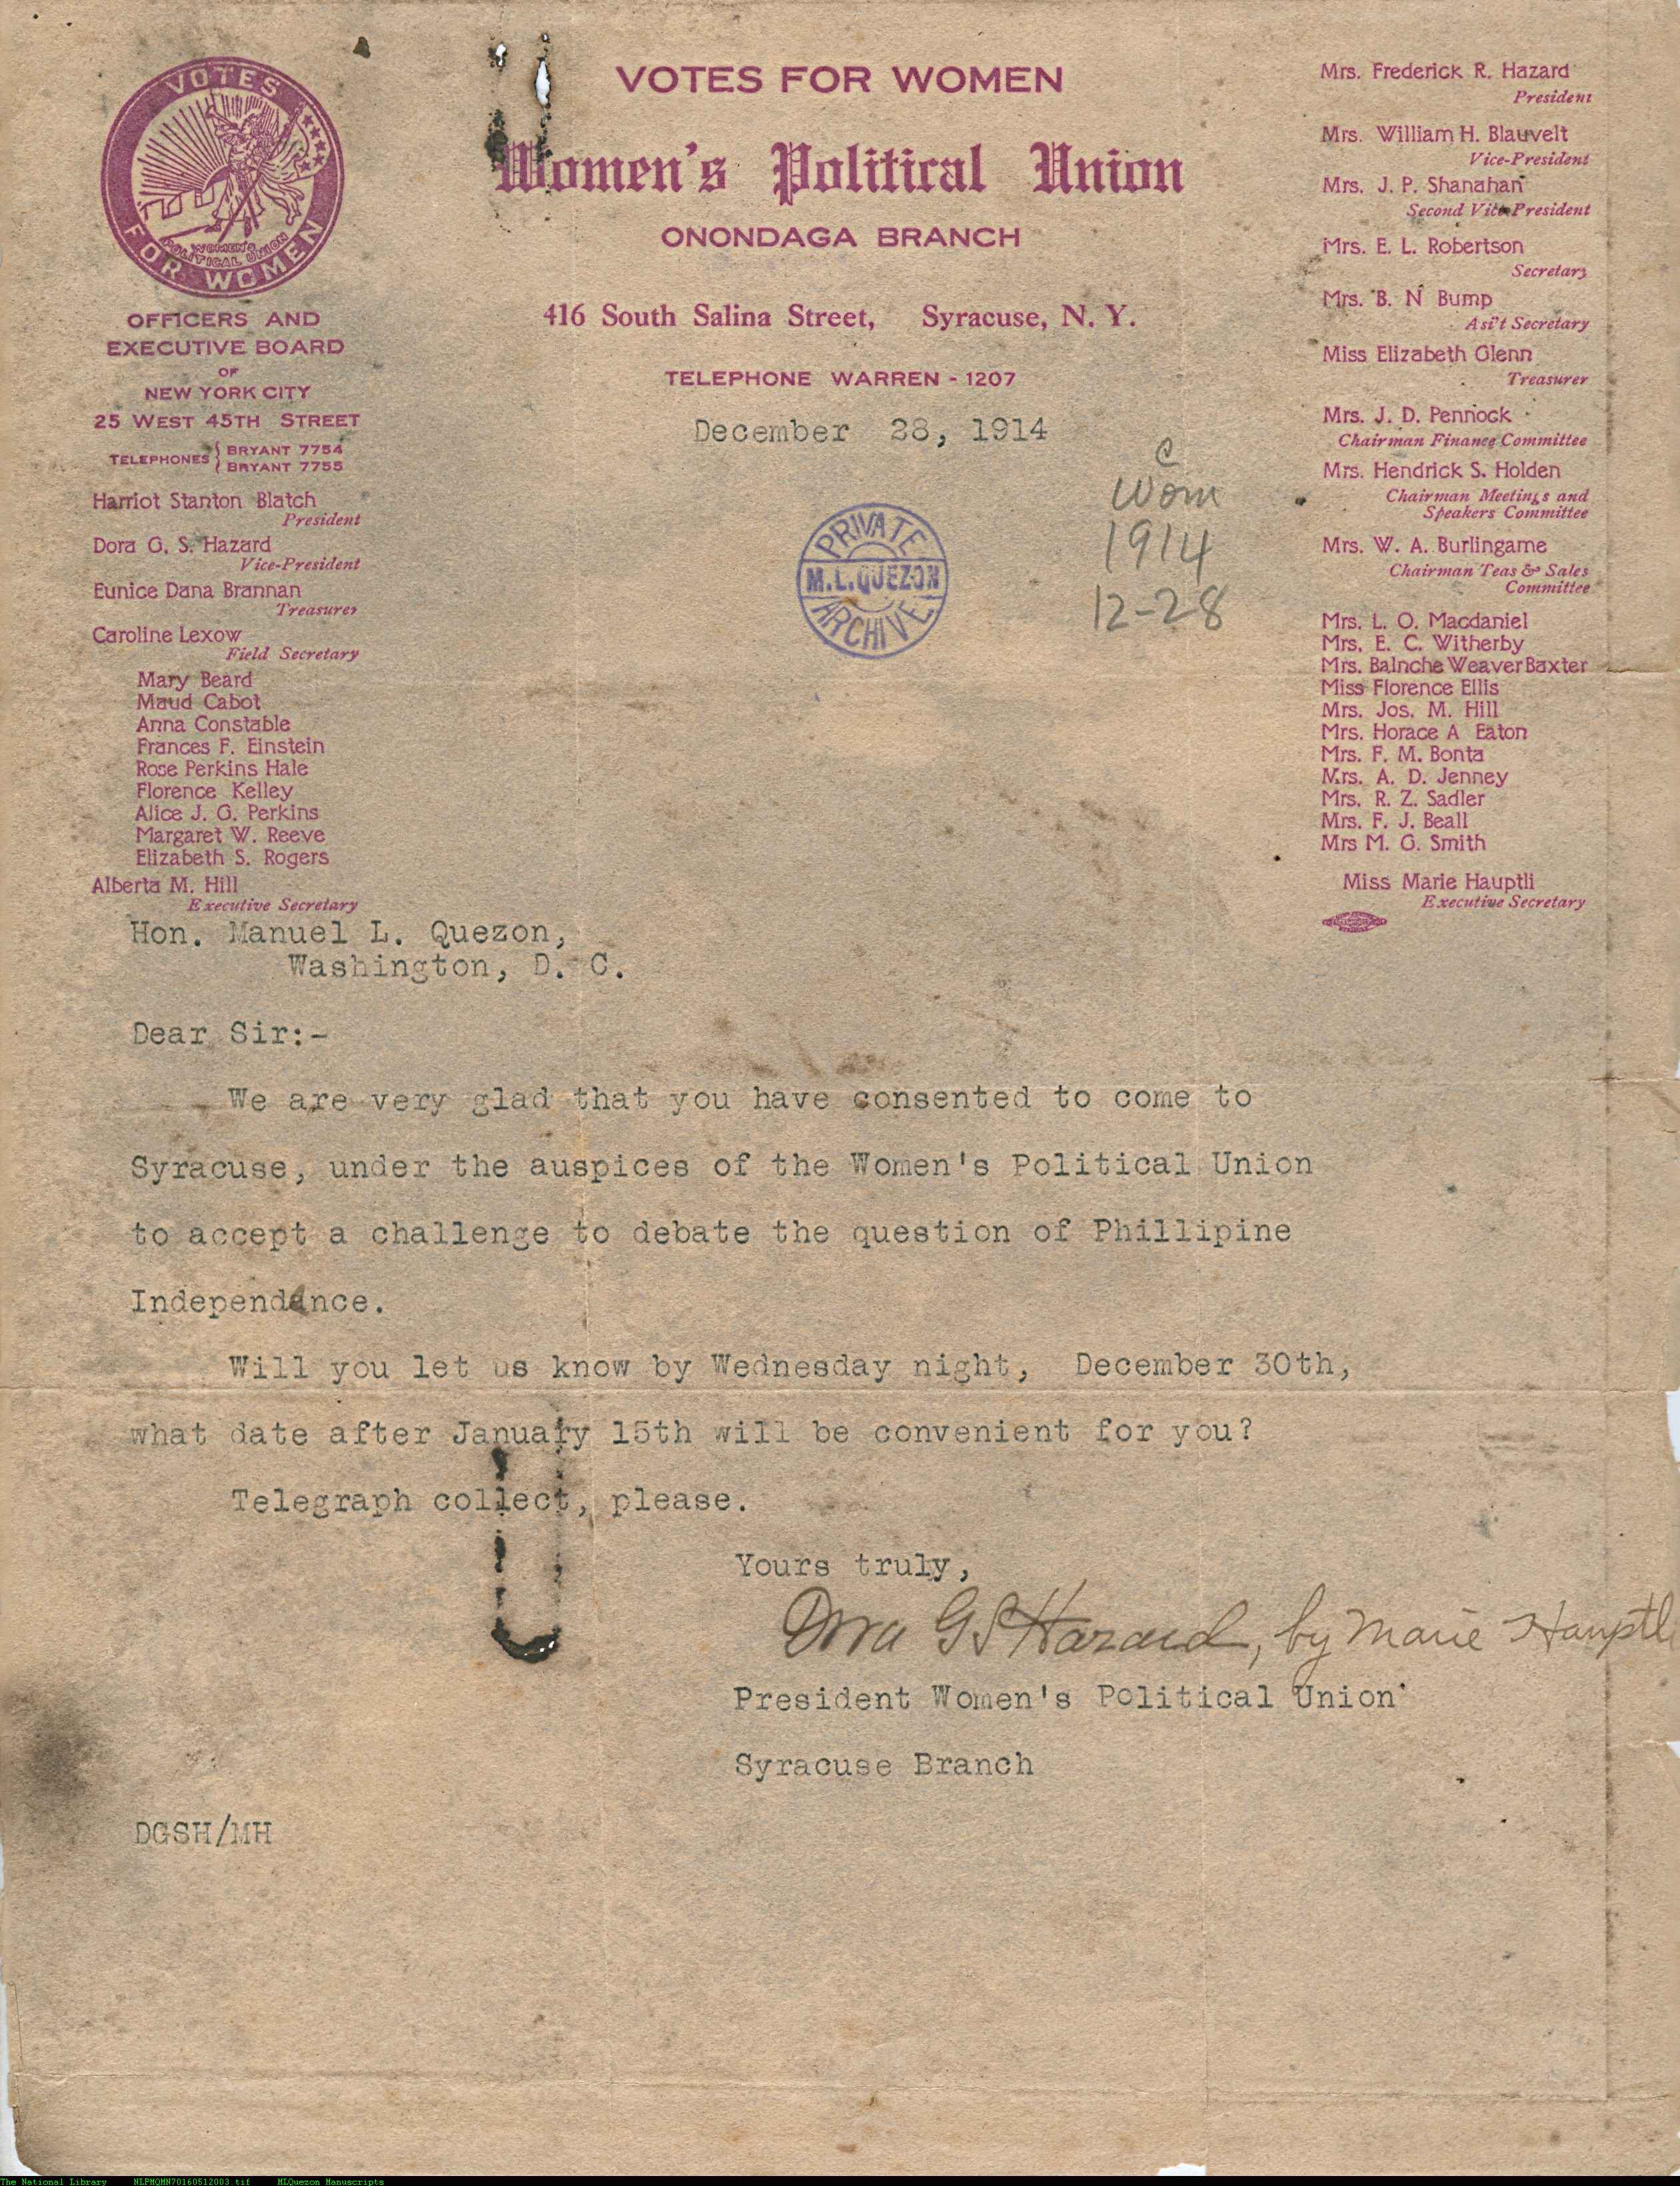 VOTES
FOR WOMEN
WOMEN'S
POLITICAL UNION
OFFICERS AND
EXECUTIVE BOARD
OF
NEW YORK CITY
25 WEST 45TH STREET
TELEPHONES { BRYANT 7754
BRYANT 7755
Harriot Stanton Blatch
President
Dora G. S. Hazard
Vice-President
Eunice Dana Brannan
Treasurer
Caroline Lexow
Field Secretary
Mary Beard
Maud Cabot
Anna Constable
Frances F. Einstein
Rose Perkins Hale
Florence Kelley
Alice J. G. Perkins
Margaret W. Reeve
Elizabeth S. Rogers
Alberta M. Hill
Executive Secretary
VOTES FOR WOMEN
Women's Political Union
ONONDAGA BRANCH
416 South Salina Street, Syracuse, N. Y.
TELEPHONE WARREN - 1207
Mrs. Frederick R. Hazard
President
Mrs. William H. Blauvelt
Vice-President
Mrs. J. P. Shanahan
Second Vice President
Mrs. E. L. Robertson
Secretary
Mrs. B. N Bump
Asi't Secretary
Miss Elizabeth Glenn
Treasurer
Mrs. J. D. Pennock
Chairman Finance Committee
Mrs. Hendrick S. Holden
Chairman Meetings and
Speakers Committee
Mrs. W. A. Burlingame
Chairman Teas & Sales
Committee
Mrs. L. O. Macdaniel
Mrs. E. C. Witherby
Mrs. Balnche Weaver Baxter
Miss Florence Ellis
Mrs. Jos. M. Hill
Mrs. Horace A Eaton
Mrs. F. M. Bonta
Mrs. A. D. Jenney
Mrs. R. Z. Sadler
Mrs. F. J. Beall
Mrs M. G. Smith
Miss Marie Hauptli
Executive Secretary
December 28, 1914
C
Wom
1914
12-28
PRIVATE
M.L.QUEZON
ARCHIVE
Hon. Manuel L. Quezon,
Washington, D. C.
Dear Sir:-
We are very glad that you have consented to come to
Syracuse, under the auspices of the Women's Political Union
to accept a challenge to debate the question of Phillipine
Independence.
Will you let us know by Wednesday night, December 30th,
what date after January 15th will be convenient for you?
Telegraph collect, please.
Yours truly,
Dora G S Hazard, by Marie Hauptli
President Women's Political Union
Syracuse Branch
DGSH/MH
The National Library NLPMQMN70160512003.tif MLQuezon Manuscripts